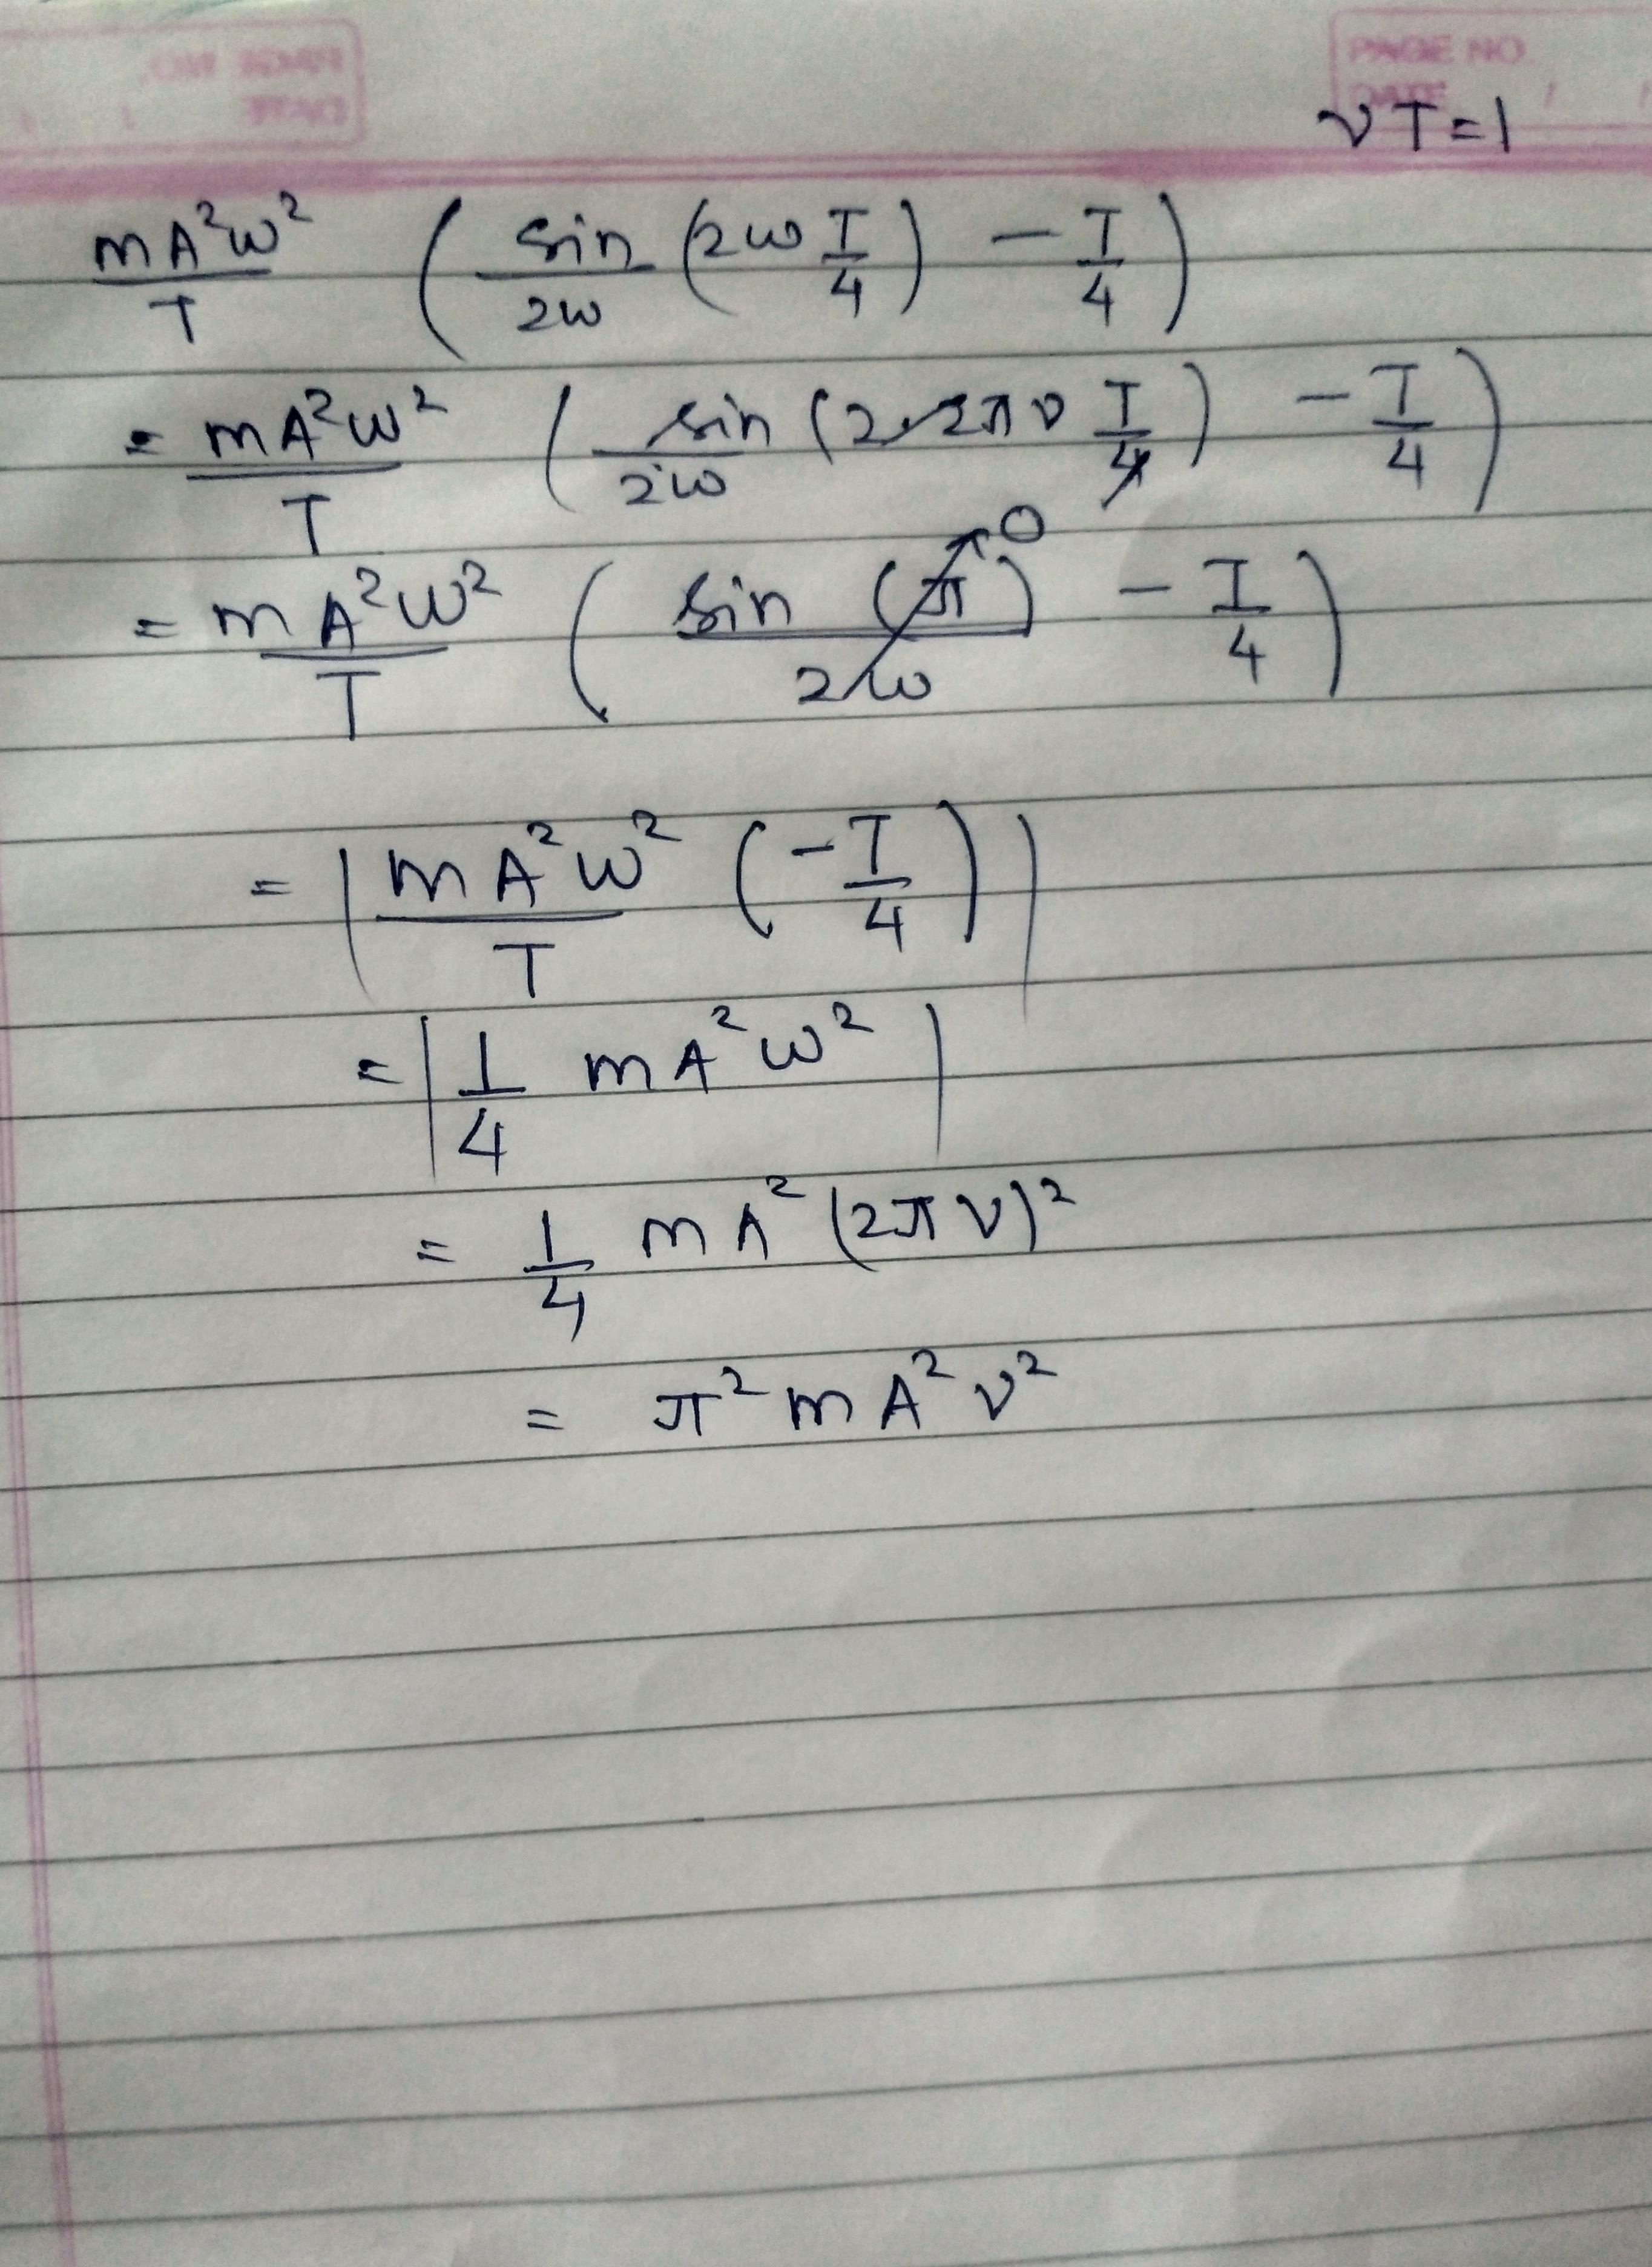 PAGE NO.
DATE / /
νT=1
mA²ω²/T ( sin/2ω (2ω T/4) - T/4 )
= mA²ω²/T ( sin/2ω (2·2πν T/4) - T/4 )
= mA²ω²/T ( sin (π)/2ω → 0 - T/4 )
= | mA²ω²/T (-T/4) |
= | 1/4 mA²ω² |
= 1/4 mA² (2πν)²
= π² mA² ν²